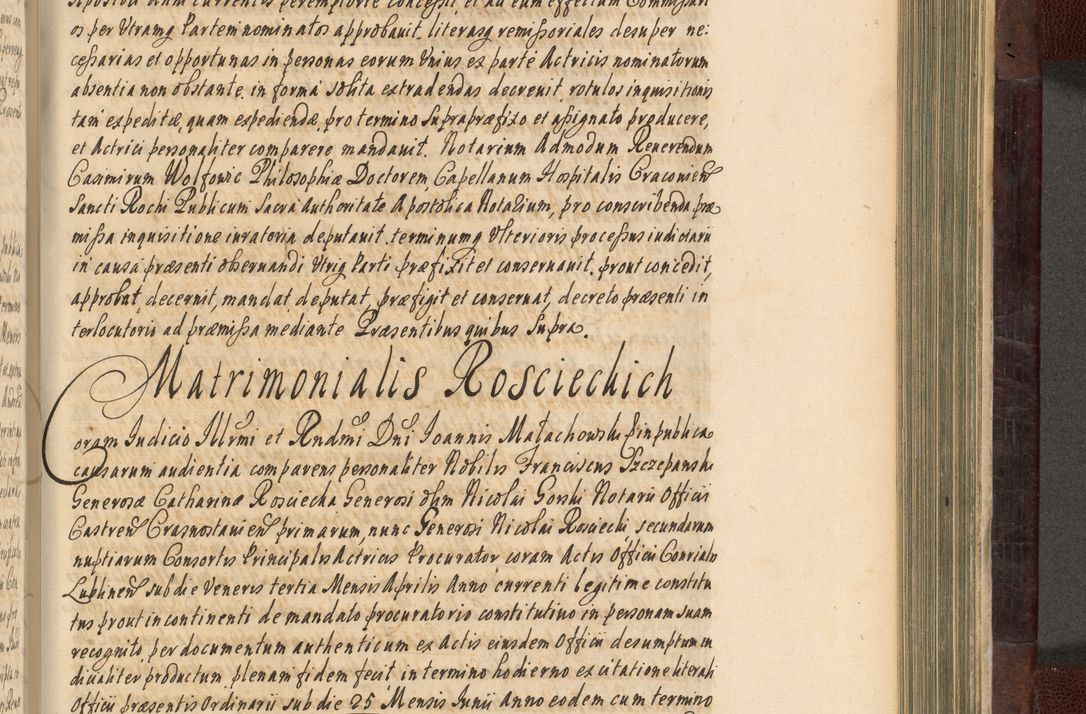 Apostoli Anni currentis peremptorie concessit, et ad eum effectum Commissari
os per Utramq Partem nominatos approbauit, literasq remissoriales desuper ne:
cessarias et opportunas in personas eorum Unius ex parte Actricis nominatorum
absentia non obstante, in forma solita extradendas decreuit, rotulos inquisitionis
tam expeditæ, quam expediendæ, pro termino supra præfixo et assignato producere,
et Actrici personaliter comparere mandauit. Notarium Admodum Reuerendum
Casimirum Wolfowic Philosophiæ Doctorem, Capellanum Hospitalis Cracouien
Sancti Rochi Publicum Sacra Authoritate Apostolica Notarium, pro conscribenda præ
missa inquisitione iuratoria deputauit, terminumq Ulterioris processus iudiciarii
in causa præsenti obseruandi Utriq Parti præfixit et conseruauit, prout concedit,
approbat, decernit, mandat, deputat, præfigit et conseruat, decreto præsenti in
terlocutorio ad præmissa mediante Præsentibus quibus Supra.
Matrimonialis Rosciechich
Coram Iudicio Illrmi et Rndmi Dni Ioannis Małachowski Epin publica
causarum audientia comparens personaliter Nobilis Franciscus Szczepanski
Generosæ Catharinæ Rosciecka Generosi olim Nicolai Gorski Notarii Officii
Castren Crasnostauien primarum, nunc Generosi Nicolai Rosciecki secundarum
nuptiarum Consortis Principalis Actricis Procurator, coram Actis Officii Consrialis
Lublinen sub die Veneris tertia Mensis Aprilis Anno currenti legitime constitu
tus prout in continenti de mandato procuratorio constitutiuo in personam suam
recognito, per documentum authenticum ex Actis eiusdem Officii desumptum iu
dicialiter productum, plenam fidem fecit, in termino hodierno ex citatione literali
Officii præsentis Ordinarii sub die 25 Mensis Iunii Anno eodem cum termino